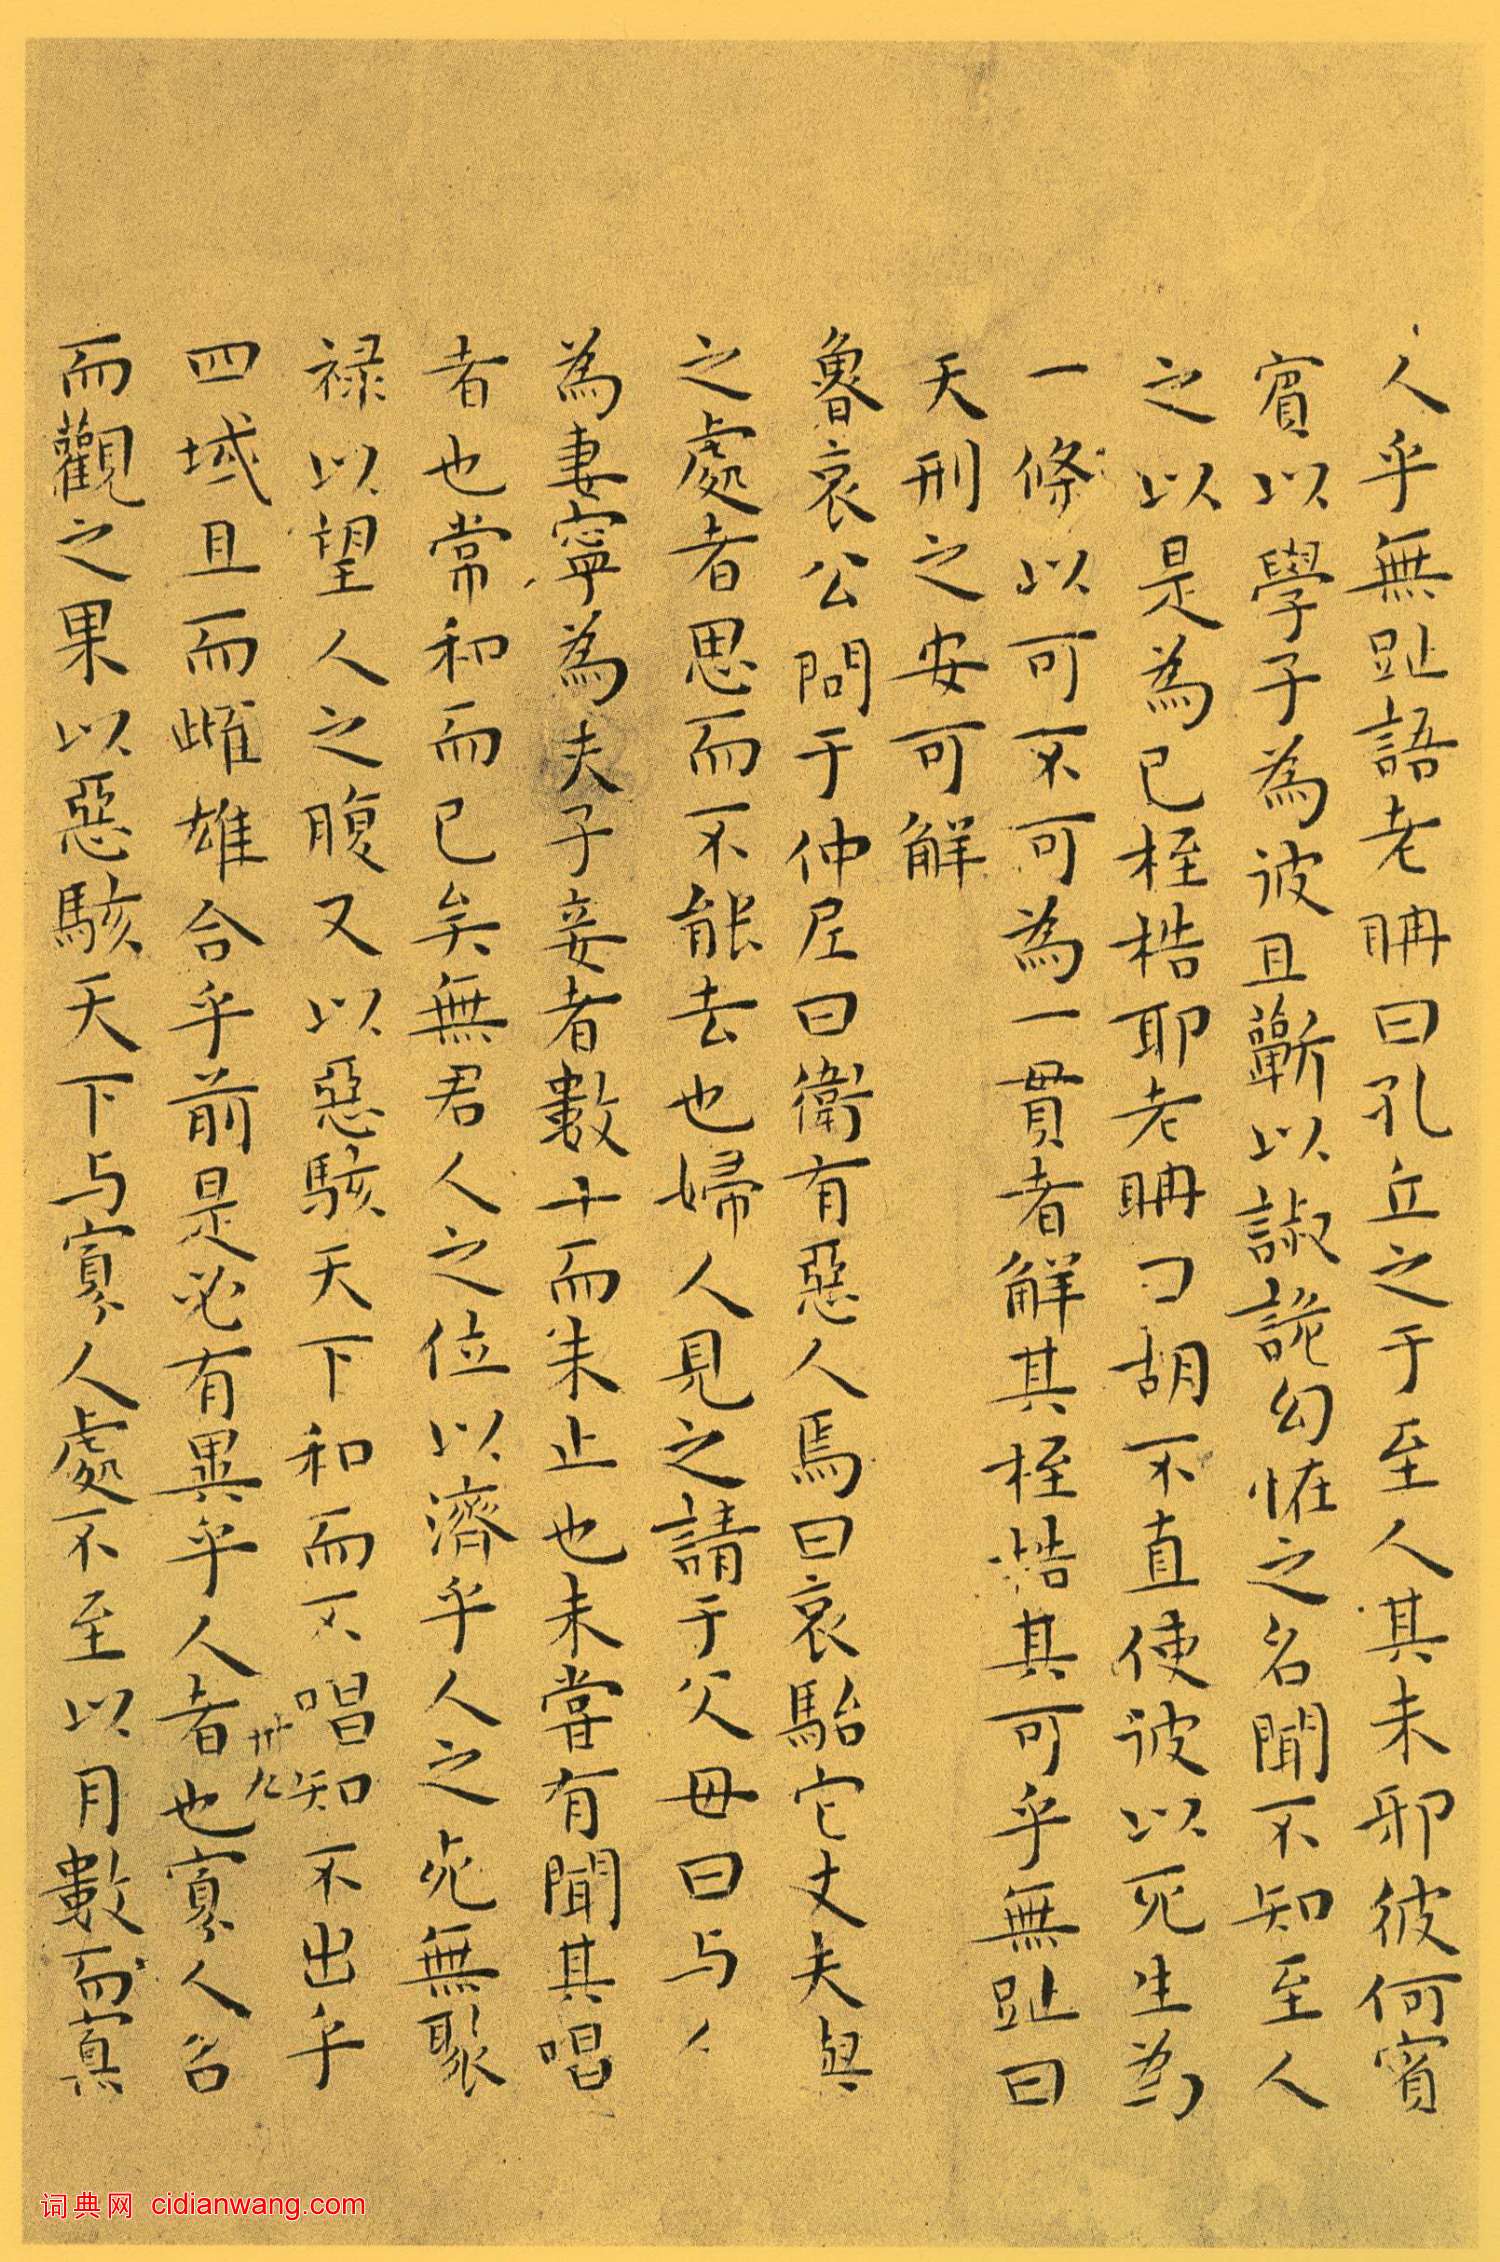 人乎無趾語老聃曰孔丘之于至人其未邪彼何賓
賓以學子為彼且蘄以諔詭幻怪之名聞不知至人
之以是為己桎梏耶老聃曰胡不直使彼以死生為
一條以可不可為一貫者解其桎梏其可乎無趾曰
天刑之安可解
魯哀公問于仲尼曰衛有惡人焉曰哀駘它丈夫與
之處者思而不能去也婦人見之請于父母曰与人
為妻寧為夫子妾者數十而未止也未嘗有聞其唱
者也常和而已矣無君人之位以濟乎人之死無聚
禄以望人之腹又以惡駭天下和而不唱知不出乎
四域且而雌雄合乎前是必有異乎人者也寡人召
而觀之果以惡駭天下与寡人處不至以月數而寡
词典网 cidianwang.com